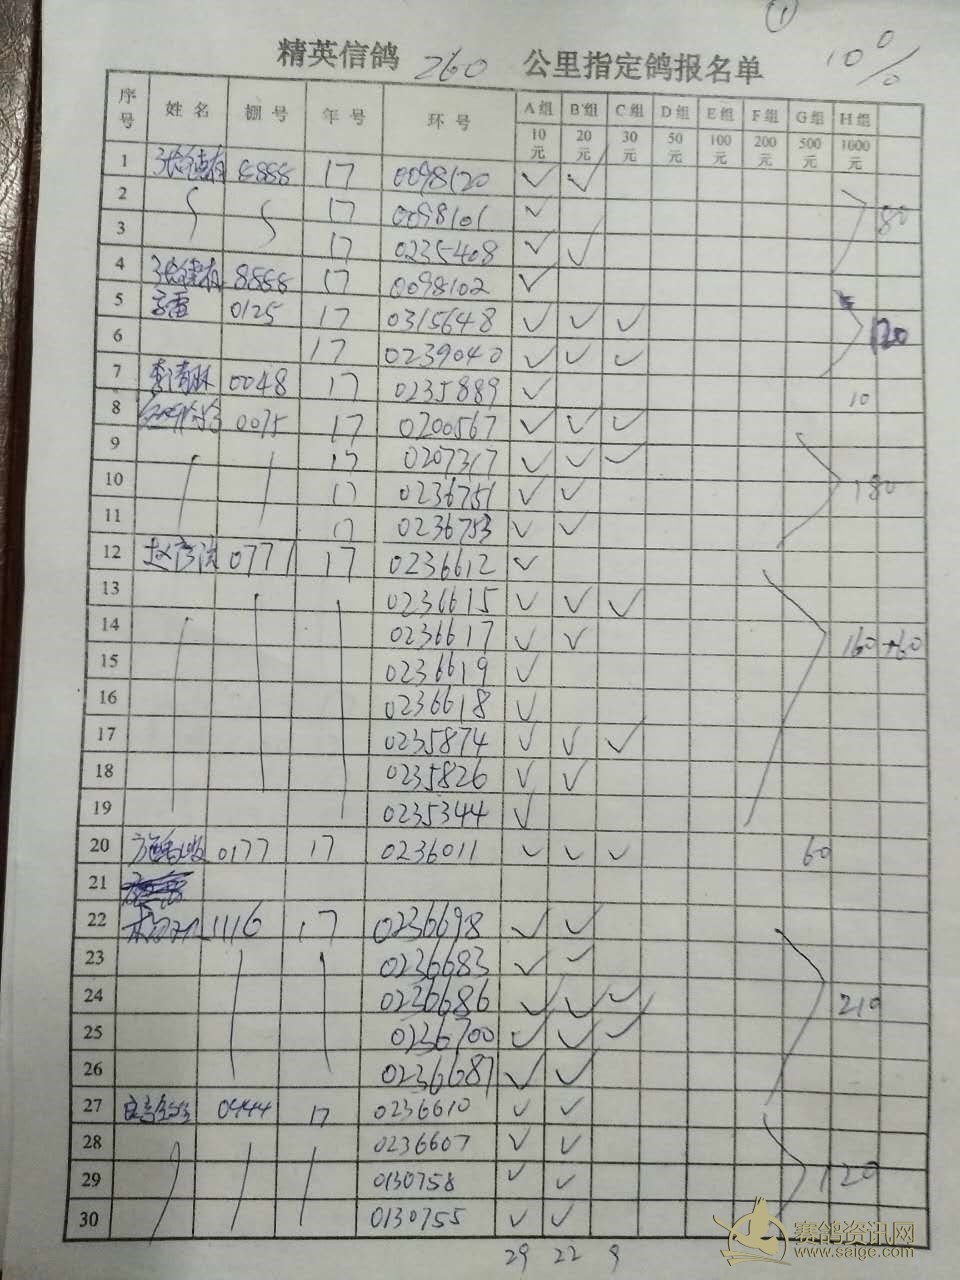 ①
精英信鸽 260 公里指定鸽报名单 10%
序号 姓名 棚号 年号 环号 A组 B组 C组 D组 E组 F组 G组 H组
10元 20元 30元 50元 100元 200元 500元 1000元
1 8888 17 0098120 ✓ ✓
2 17 0098101 ✓ 80
3 17 0235408 ✓ ✓
4 8888 17 0098102 ✓
5 0125 17 0315648 ✓ ✓ ✓ 120
6 17 0239040 ✓ ✓ ✓
7 0048 17 0235889 ✓ 10
8 0075 17 0200567 ✓ ✓ ✓
9 17 0207317 ✓ ✓ ✓
10 17 0236751 ✓ ✓ 180
11 17 0236753 ✓ ✓
12 0777 17 0236612 ✓
13 0236615 ✓ ✓ ✓
14 0236617 ✓ ✓ 160+60
15 0236619 ✓
16 0236618 ✓
17 0235874 ✓ ✓ ✓
18 0235826 ✓ ✓
19 0235344 ✓
20 0177 17 0236011 ✓ ✓ ✓ 60
21
22 1116 17 0236698 ✓ ✓
23 0236683 ✓ ✓
24 0236686 ✓ ✓ ✓ 210
25 0236700 ✓ ✓ ✓
26 0236687 ✓ ✓
27 0444 17 0236610 ✓ ✓
28 0236607 ✓ ✓
29 0130758 ✓ ✓ 120
30 0130755 ✓ ✓
29 22 9
赛鸽资讯网
www.saige.com